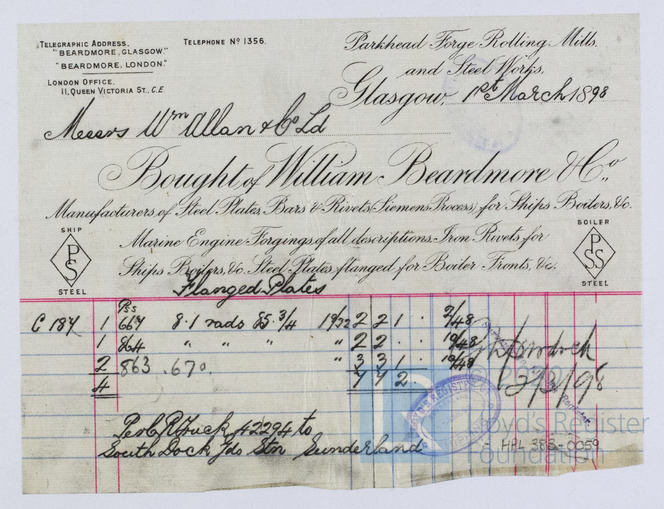 Telegraphic Address,
"Beardmore, Glasgow."
"Beardmore, London."
London Office,
11, Queen Victoria St., C.E.
Telephone No 1356.
Parkhead Forge Rolling Mills
and Steel Works,
Glasgow, 1st March 1898
Messrs Wm Allan & Co Ld
Bought of William Beardmore & Co.,
Manufacturers of Steel Plates, Bars & Rivets (Siemens Process) for Ships Boilers, &c.
Marine Engine Forgings of all descriptions. Iron Rivets for
Ships Boilers, &c. Steel Plates flanged for Boiler Fronts, &c.
SHIP
PS
STEEL
BOILER
PSS
STEEL
Flanged Plates
Pss
C 187 1 667 8.1 rads 85 3/4 19/32 2 2 1 . 2/48
1 864 " " " " 2 2 . . 10/48
2 863 .670. " 3 3 1 . 10/48
4 7 7 2 .
2/3/98
Per C R Truck 42294 to
South Dock Yds Stn Sunderland
Lloyd's Register
Foundation
HPL 385-0059